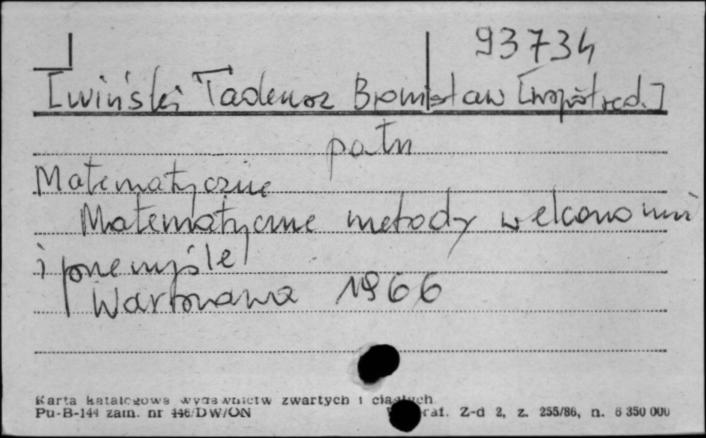 93734
Iwiński Tadeusz Bronisław [współred.]
patrz
Matematyczne
Matematyczne metody w ekonomii
i przemyśle
Warszawa 1966
Karta katalogowa wydawnictw zwartych i ciągłych
Pu-B-144 zam. nr 446/DW/ON graf. Z-d 2, z. 255/86, n. 6 350 000